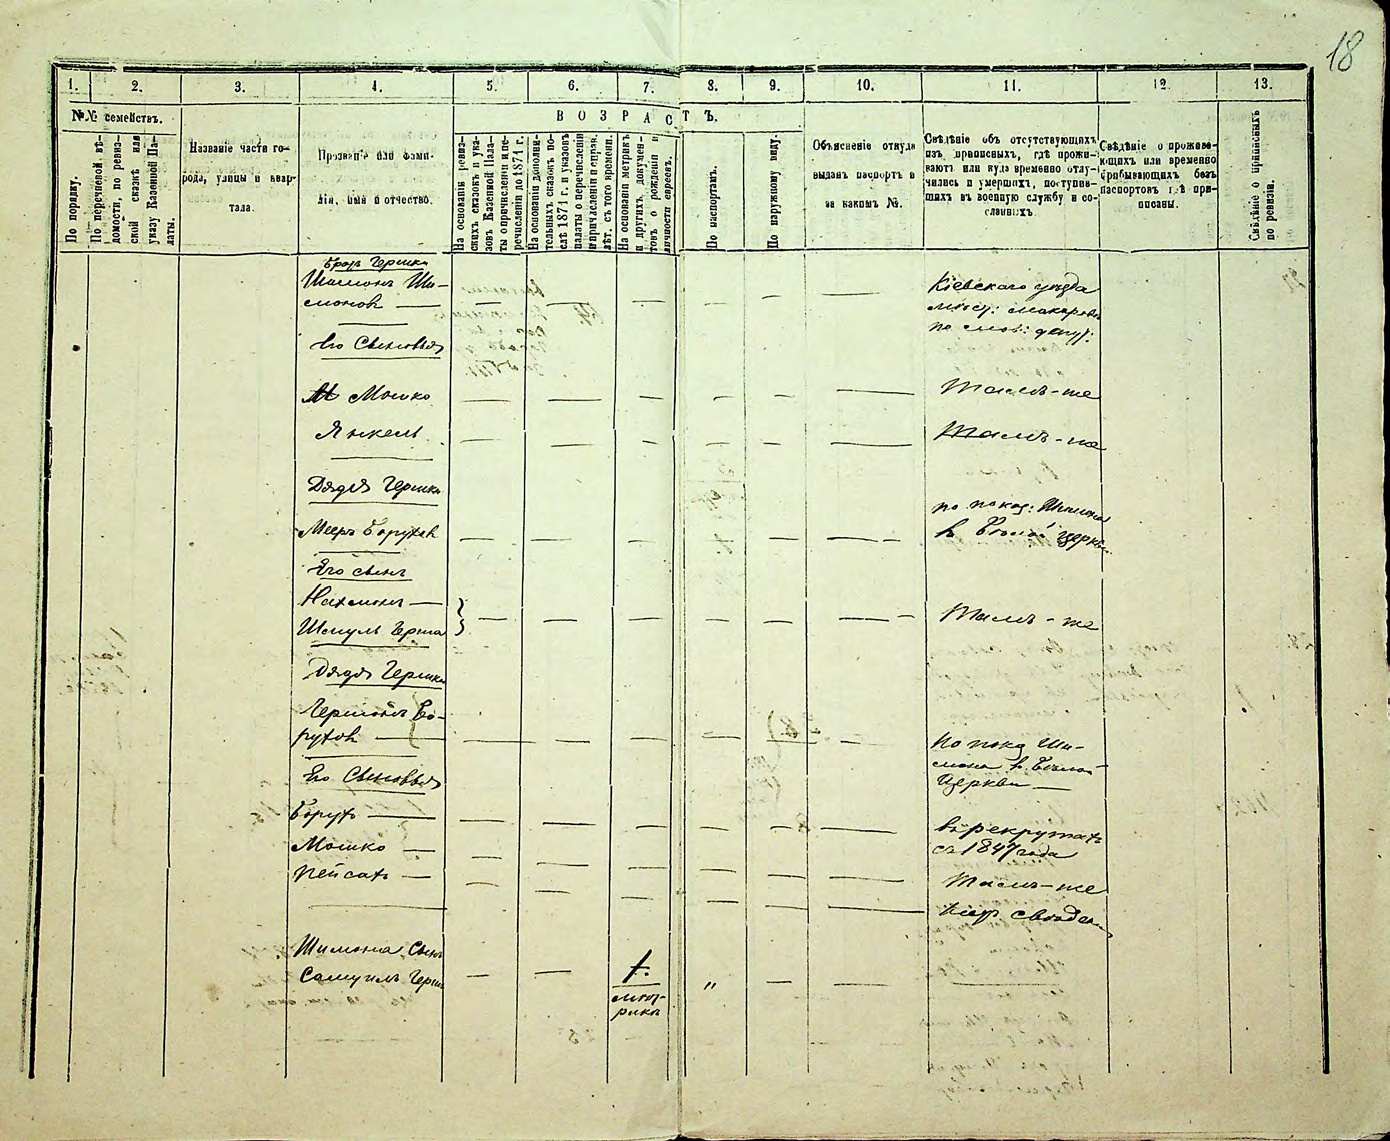 18
1. 2. 3. 4. 5. 6. 7. 8. 9. 10. 11. 12. 13.
№№ семействъ.
ВОЗРАСТЪ.
По порядку.
По перечневой вѣ-
домости, по ревиз-
ской сказкѣ или
указу Казенной Па-
латы.
Названіе части го-
рода, улицы и квар-
тала.
Прозваніе или фами-
лія, имя и отчество.
На основаніи ревиз-
скихъ сказокъ и ука-
зовъ Казенной Пала-
ты о причисленіи и пе-
речисленіи до 1871 г.
На основаніи дополни-
тельныхъ сказокъ по-
слѣ 1871 г. и указовъ
палаты о перечисленіи
и причисленіи и справ.
лѣт. съ того времени.
На основаніи метрикъ
и другихъ докумен-
товъ о рожденіи и
личности евреевъ.
По паспортамъ.
По наружному виду.
Объясненіе откуда
выданъ паспортъ и
за какимъ №.
Свѣдѣніе объ отсутствующихъ
изъ приписныхъ, гдѣ прожи-
ваютъ или куда временно отлу-
чились и умершихъ, поступив-
шихъ въ военную службу и со-
сланныхъ.
Свѣдѣніе о прожива-
ющихъ или временно
прибывающихъ безъ
паспортовъ гдѣ при-
писаны.
Свѣдѣніе о приписныхъ
по ревизіи.
братъ Гершка
Шимонъ Ши-
моновъ
Кіевскаго уѣзда
мѣст: Макарова
по слов: депут:
Его Сыновья
Мошко
Тамъ-же
Янкель
Тамъ-же
Дядя Гершка
Мееръ Борухов
по показ: Шимона
в Бѣлой Церкви
Его сынъ
Нахманъ
Шмуль Герша
Тамъ-же
Дядя Гершка
Гершонъ Бо-
рухов
По показ Ши-
мона в. Бѣлой
Церкви
Его Сыновья
Борухъ
въ рекрутахъ
съ 1847 года
Мошко
Тамъ-же
Пейсахъ
Шимона Сынъ
Самуилъ Герш
1.
мет-
рика
"